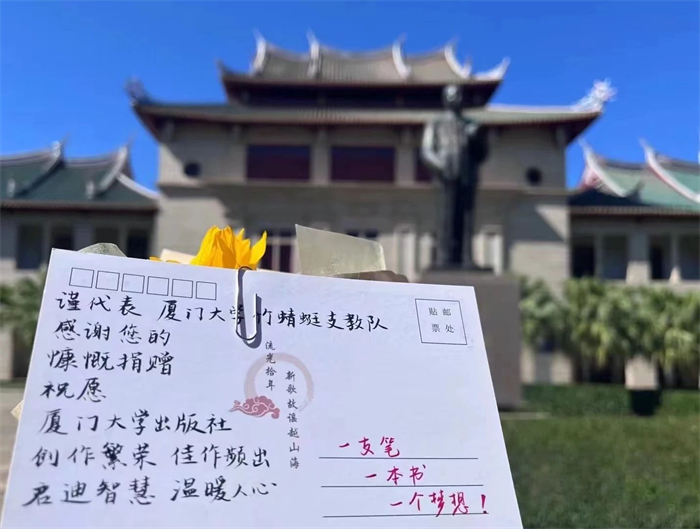 谨代表 厦门大学竹蜻蜓支教队
感谢您的
慷慨捐赠
祝愿
厦门大学出版社
创作繁荣 佳作频出
启迪智慧 温暖人心
流光拾年
新歌故谣越山海
贴邮
票处
一支笔
一本书
一个梦想！